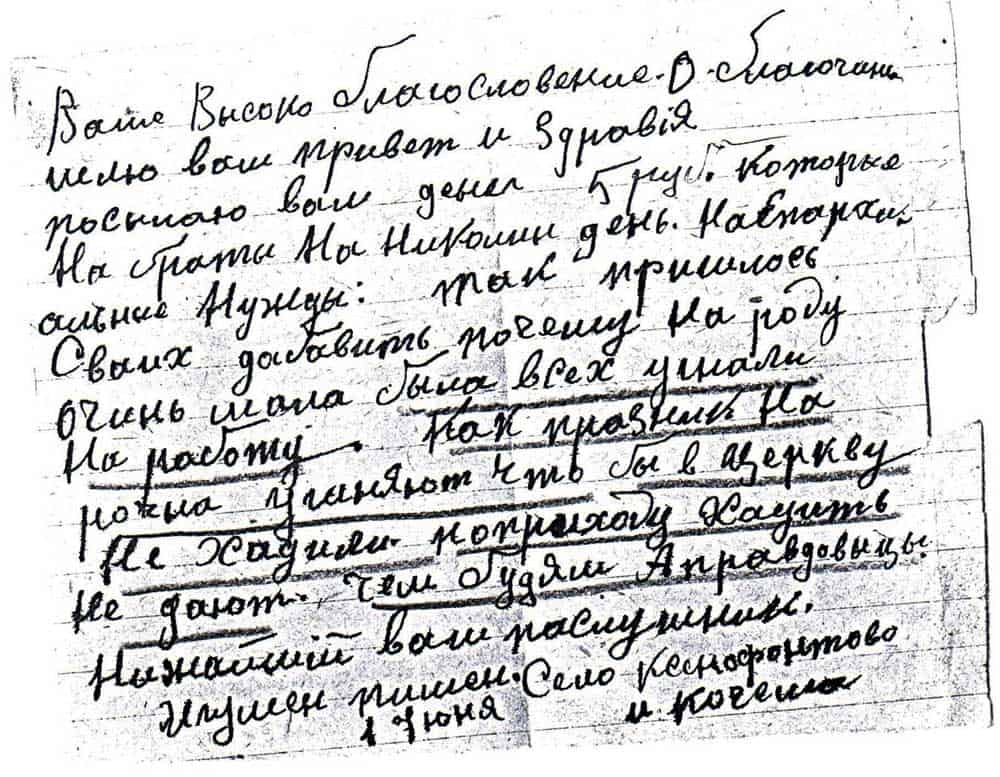 Ваше Высоко благословение. О. благочин
шлю вам привет и Здравiя
посылаю вам денег 5 руб. которые
На браты На Николин день. На Епархи-
альные Нужды: так пришлось
Сваих дабавить почему На роду
очинь мала была всех угнали
На работу. Как празник На
рочна угоняют что бы в церкву
Не хадили. поприходу хадить
Не дают. чем будям Аправдовыцы.
Нижайший ваш паслушник.
Игумен пимен. Село Ксенофонтово
1 Июня и. Кочема